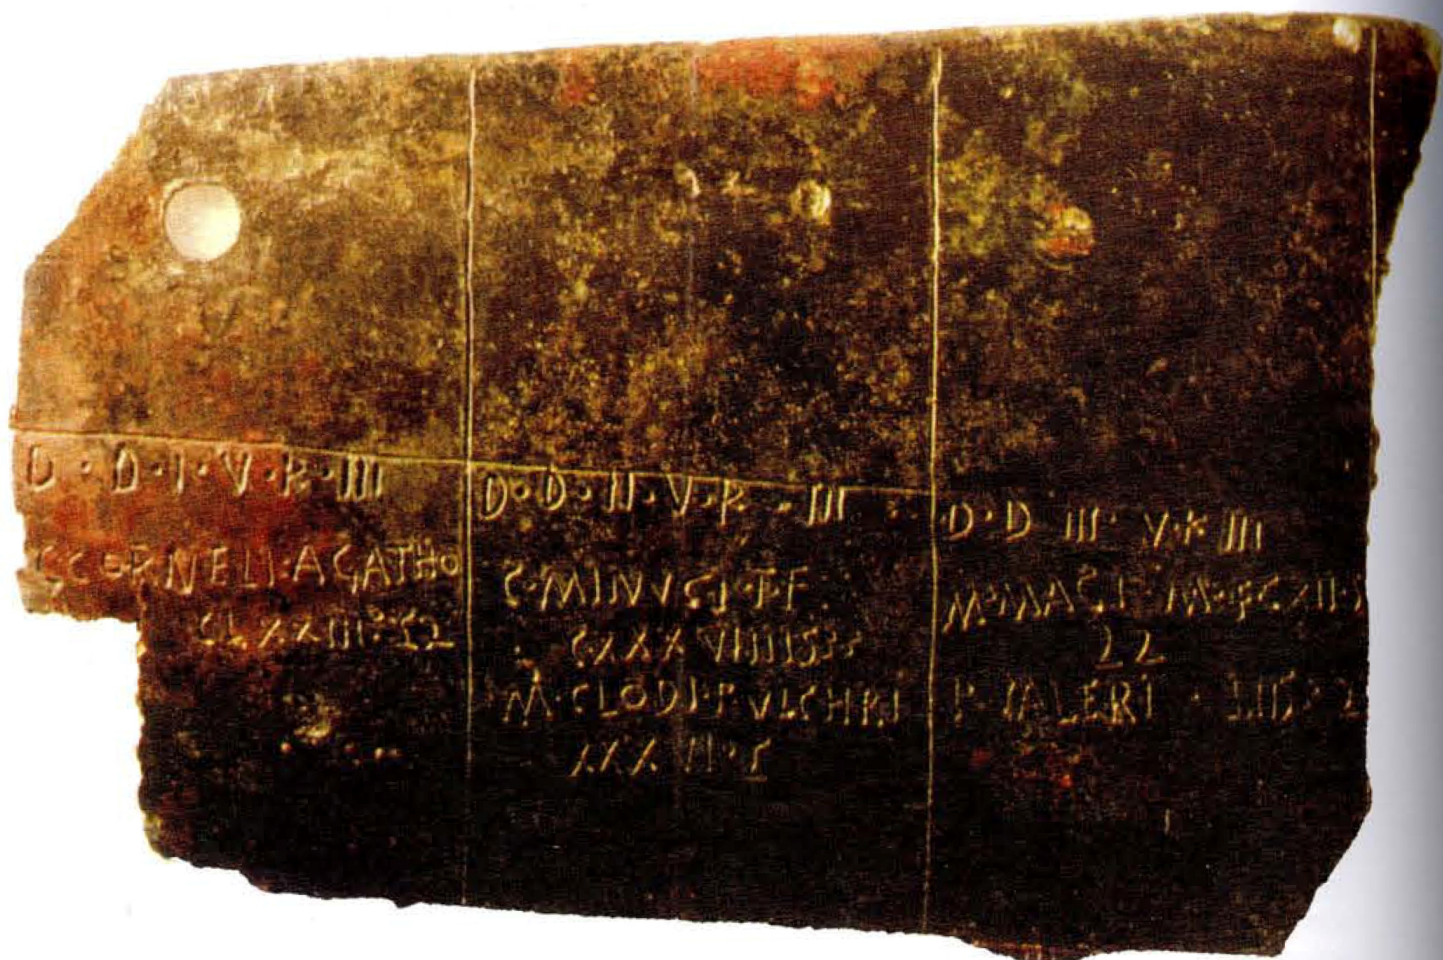 D · D · I · V · K · III
C CORNELI · AGATHO
CLXXIII
D · D · II · V · K · III
C · MINVCI · T · F
CXXXVIIII
M · CLODI · PVLCHRI
XXXVI
D · D III · V · K III
M · MACI · M · F CXII
P · VALERI